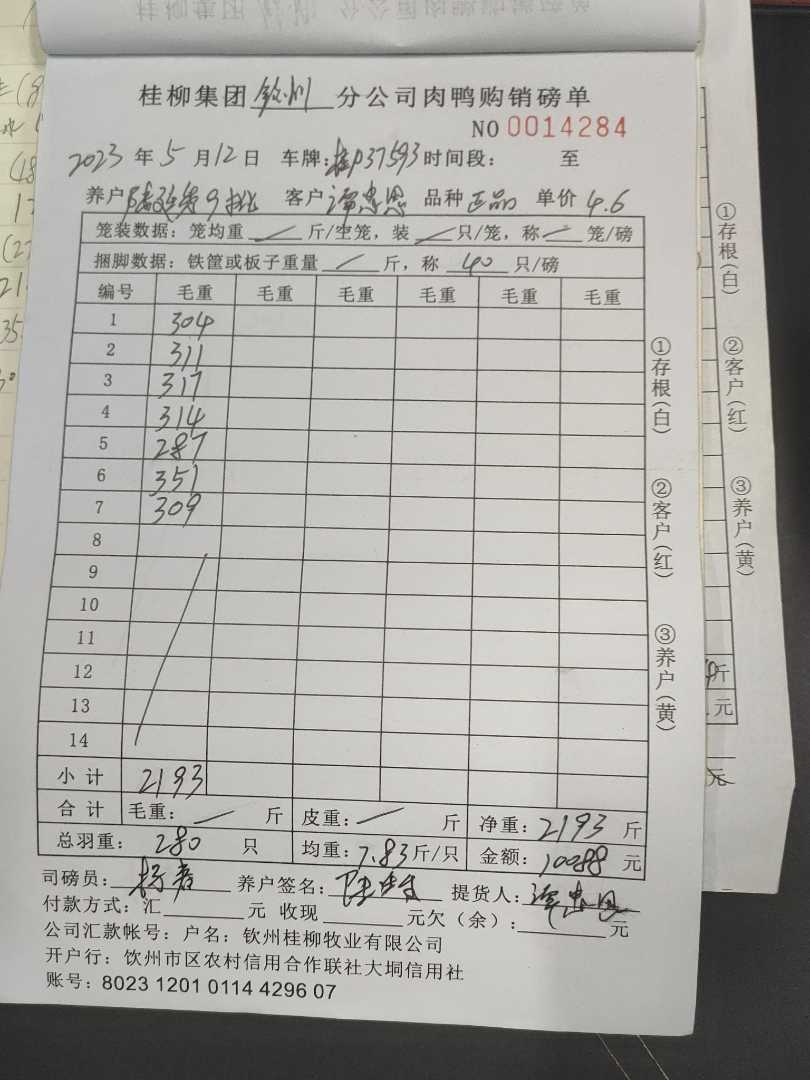 桂柳集团 钦州 分公司肉鸭购销磅单
NO 0014284
2023 年 5 月 12 日 车牌: 桂P37593 时间段: 至
养户 9批 客户 谭忠恩 品种 正品 单价 4.6
笼装数据: 笼均重 / 斤/空笼, 装 / 只/笼, 称 / 笼/磅
捆脚数据: 铁筐或板子重量 / 斤, 称 40 只/磅
编号 毛重 毛重 毛重 毛重 毛重 毛重
1 304
2 311
3 317
4 314
5 287
6 351
7 309
8
9
10
11
12
13
14
小计 2193
合计 毛重: / 斤 皮重: / 斤 净重: 2193 斤
总羽重: 280 只 均重: 7.83 斤/只 金额: 10088 元
司磅员: 养户签名: 提货人: 谭忠恩
付款方式: 汇 元 收现 元欠（余）: 元
公司汇款帐号: 户名: 钦州桂柳牧业有限公司
开户行: 钦州市区农村信用合作联社大垌信用社
账号: 8023 1201 0114 4296 07
①存根（白）
②客户（红）
③养户（黄）
①存根（白）
②客户（红）
③养户（黄）
斤
元
元